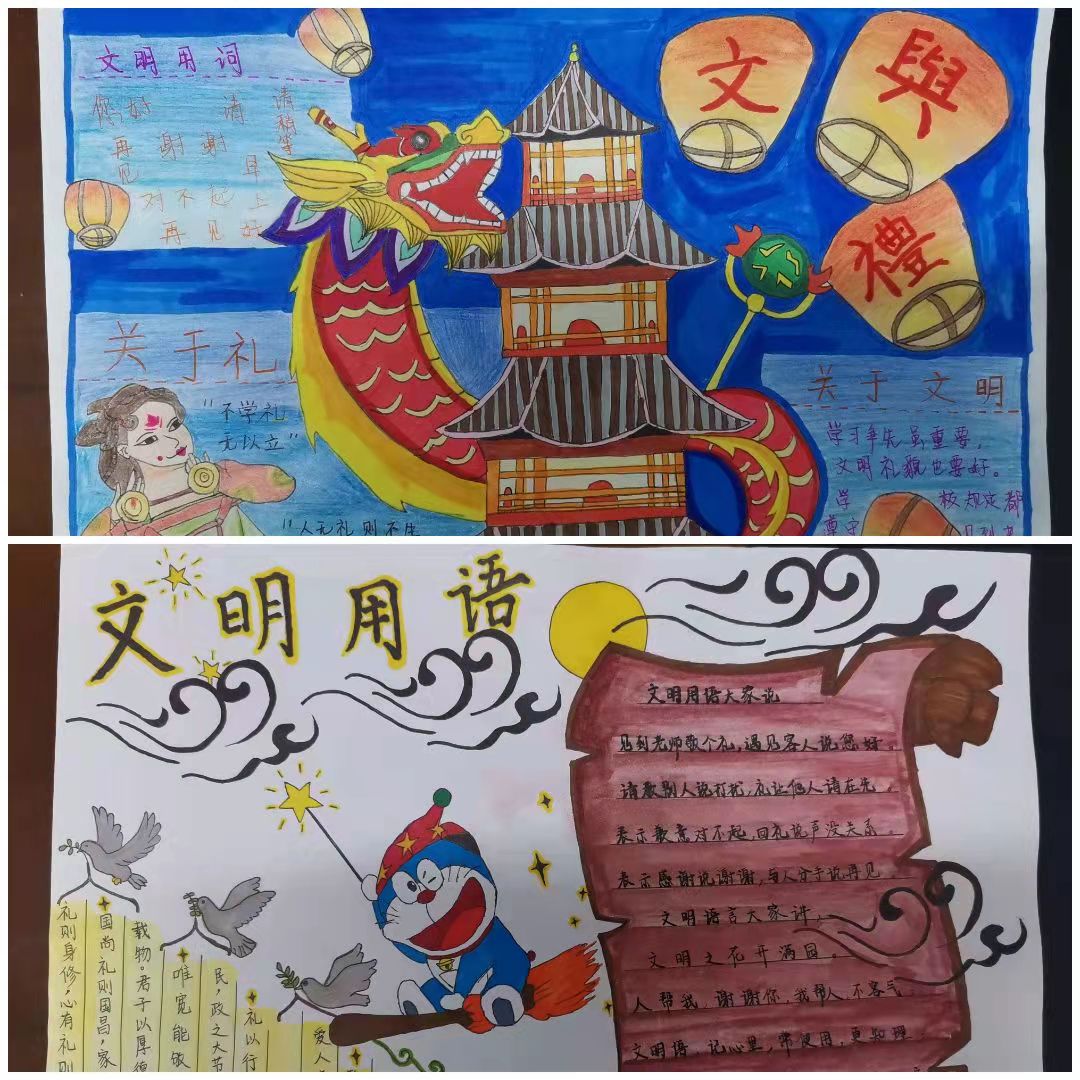 文明用词
您好 请 请稍等
再见 谢谢 早上好
对不起
再见
文
與
禮
关于礼
"不学礼
无以立"
"人无礼则不生
关于文明
学习争先虽重要,
文明礼貌也要好。
学 校规定都
遵守 见到
文明用语
文明用语大家说
见到老师敬个礼,遇见客人说您好。
请教别人说打扰,礼让他人请在先。
表示歉意对不起,回礼说声没关系。
表示感谢说谢谢,与人分手说再见。
文明语言大家讲,
文明之花开满园。
人帮我,谢谢你,我帮人,不客气。
文明语,记心里,常使用,更知理。
礼则身修,心有礼则
国尚礼则国昌,家
载物。君子以厚德
唯宽能敬
民,政之大节
礼以行
爱人